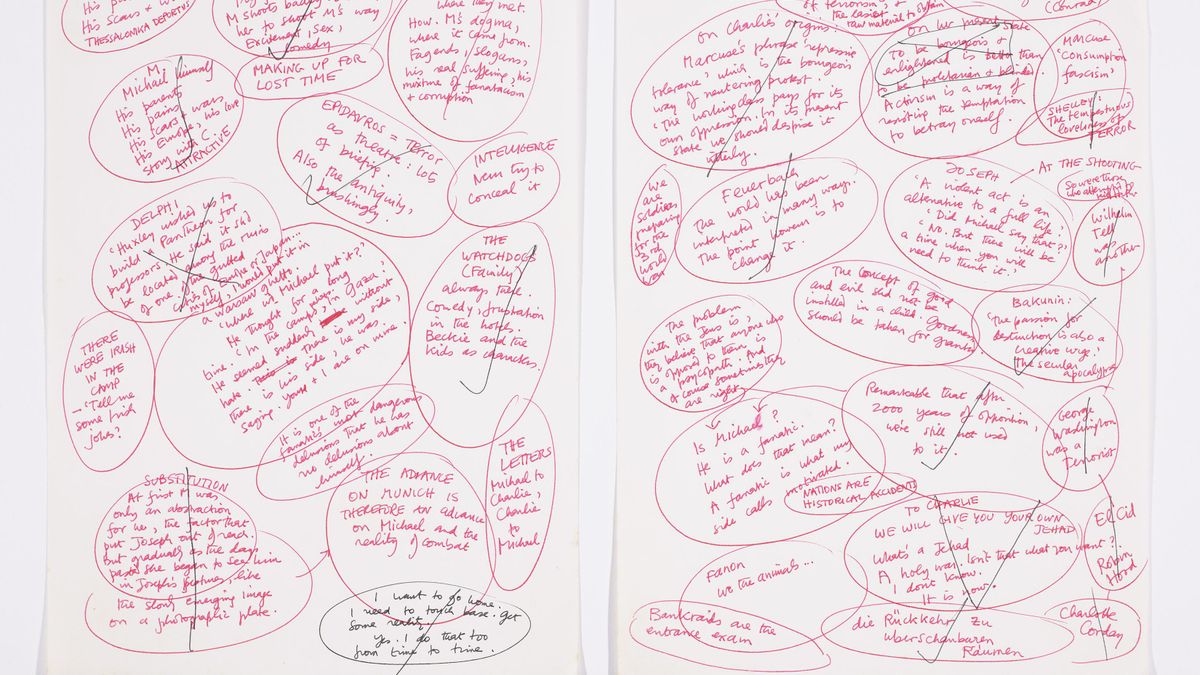 His scars & w
THESSALONIKA DEPORTES
M shoots badly
her to shoot M's way
Excitement, sex,
comedy
where they met.
How. M's dogma,
where it came from.
Fagends, slogans,
his real suffering, his
mixture of fanaticism
& corruption
MAKING UP FOR
LOST TIME
M.
Michael himself
His parents
His pains
His scars, wars
His Europe, his love
story with C.
ATTRACTIVE
EPIDAVROS = TERROR
as theatre: LOS
of briefing.
Also the antiquity,
INTELLIGENCE
Never try to
conceal it
DELPHI
'Huxley wished us to
build a Pantheon for
professors. He said it shd
be located among the ruins
of one of the gutted
cities of Europe or Japan...
myself, I would put it in
a Warsaw ghetto.
'Where wd Michael put it?'
He thought for a long
time. 'In the camps in Gaza.'
He seemed suddenly without
hate. There is my side,
there is his side, he was
saying. Yours & I are on mine.
THE
WATCHDOGS
(Family)
always there.
Comedy, frustration
in the hotels.
Beckie and the
kids as characters.
THERE
WERE IRISH
IN THE
CAMP
- 'Tell me
some Irish
jokes?'
It is one of the
fanatic's most dangerous
delusions that he has
no delusions about
himself.
THE
LETTERS
Michael to
Charlie,
Charlie
to
Michael
SUBSTITUTION
At first M was
only an abstraction
for her, the factor that
put Joseph out of reach.
But gradually as the days
passed she began to see him
in Joseph's features, like
the slowly emerging image
on a photographic plate.
THE ADVANCE
ON MUNICH IS
THEREFORE AN advance
on Michael and the
reality of combat
I want to go home.
I need to touch base. get
some reality.
Yes. I do that too
from time to time.
of terrorism, &
the easiest
raw material to obtain
(Conrad)
On Charlie's origins:
Marcuse's phrase 'repressive
tolerance', which is the bourgeois
way of neutering protest.
'The working class pays for its
own oppression. In its present
state we should despise it
utterly.
On the present state
To be bourgeois &
enlightened is better than
to be proletarian & blinded
Activism is a way of
resisting the temptation
to betray oneself.
MARCUSE
'Consumption
fascism'
SHELLEY:
The tempestuous
loveliness of
TERROR
We
are
soldiers
preparing
for the
3rd
world
war
Feuerbach
The world has been
interpreted in many ways.
The point however is to
change it.
JOSEPH
'A violent act is an
alternative to a full life.'
'Did Michael say that?'
'No. But there will be
a time when you will
need to think it.'
AT THE SHOOTING
So were those
who attempted
Wilhelm
Tell
was
another
The concept of good
and evil shd not be
instilled in a child. Goodness
should be taken for granted.
Bakunin:
'The passion for
destruction is also a
creative urge.'
The secular
apocalypse
The problem
with the Jews is,
they believe that anyone who
is opposed to them is
a psycopath. And
of course sometimes they
are right.
Is Michael?
He is a fanatic.
What does that mean?
A fanatic is what my
side calls motivated.
Remarkable that after
2000 years of opposition,
we're still not used
to it.
George
Washington
was a
Terrorist
NATIONS ARE
HISTORICAL ACCIDENTS
TO CHARLIE
WE WILL GIVE YOU YOUR OWN
JEHAD
What's a Jehad
A holy war. Isn't that what you want?
I don't know.
It is now.
El Cid
Robin
Hood
Fanon
We the animals...
Bankraids are the
entrance exam
die Rückkehr zu
überschaubaren
Räumen
Charlotte
Corday